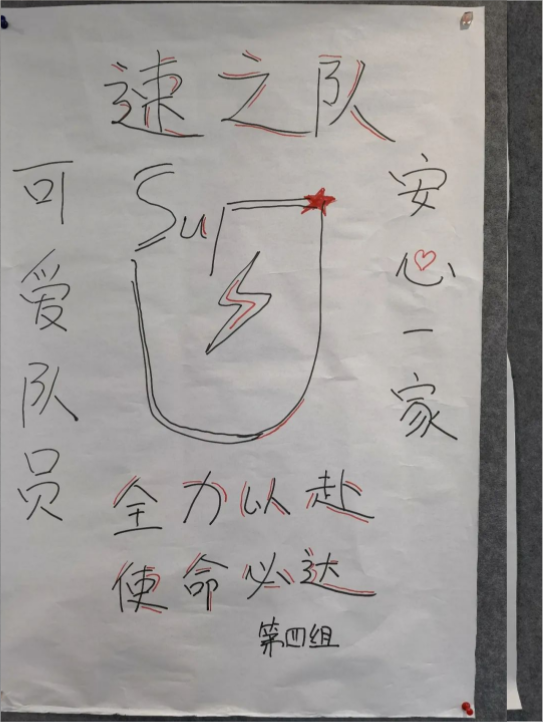 速之队
可爱队员
Sup
安心一家
全力以赴
使命必达
第四组